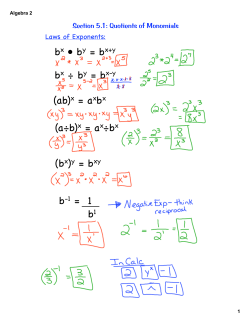 Algebra 2
Section 5.1: Quotients of Monomials
Laws of Exponents:
bˣ • bʸ = bˣ⁺ʸ
x² • x³ = x²⁺³ = x⁵
2³ • 2⁴ = 2⁷
bˣ ÷ bʸ = bˣ⁻ʸ
(ab)ˣ = aˣbˣ
(xy)³ = xy·xy·xy = x³y³
(2x)³ = 2³x³
= 8x³
(a÷b)ˣ = aˣ÷bˣ
(x/y)³ = x³/y³
(2/x)³ = 2³/x³ = 8/x³
(bˣ)ʸ = bˣʸ
(x²)³ = x² • x² • x² = x⁶
b⁻¹ = 1/b¹
Negative Exp - think
reciprocal
x⁻¹ = 1/x¹
2⁻¹ = 1/2¹ = 1/2
(2/3)⁻¹ = 3/2
In Calc
2 yˣ -1
2 ^ -1
1